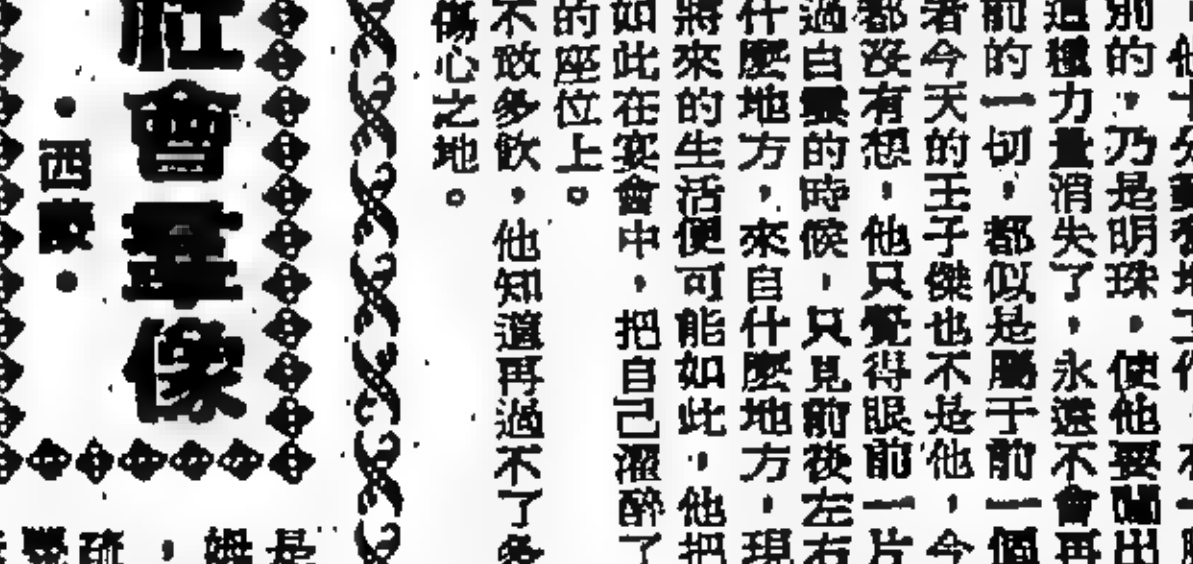 別的，乃是明珠，使他要出
這種力量消失了，永遠不會再
前的一切，都似是屬于前一個
者今天的王子傑也不是他，今
都沒有想，他只覺得眼前一片
過白雲的時候，只見前後左右
什麼地方，來自什麼地方，現
將來的生活便可能如此，他把
如此在宴會中，把自己灌醉了
的座位上。
不敢多飲，他知道再過不了多
傷心之地。
社會羣像
是
姆